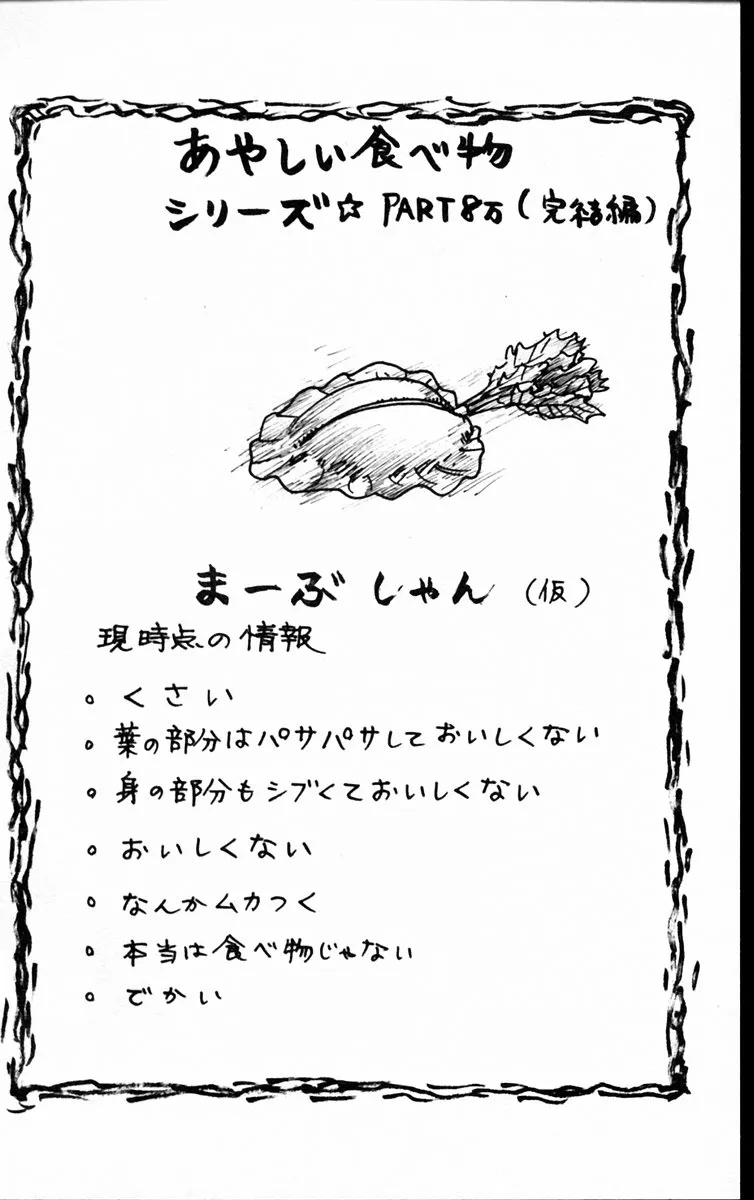 あやしい食べ物
シリーズ☆ PART8万(完結編)
まーぶしゃん(仮)
現時点の情報
。くさい
。葉の部分はパサパサしておいしくない
。身の部分もシブくておいしくない
。おいしくない
。なんかムカつく
。本当は食べ物じゃない
。でかい